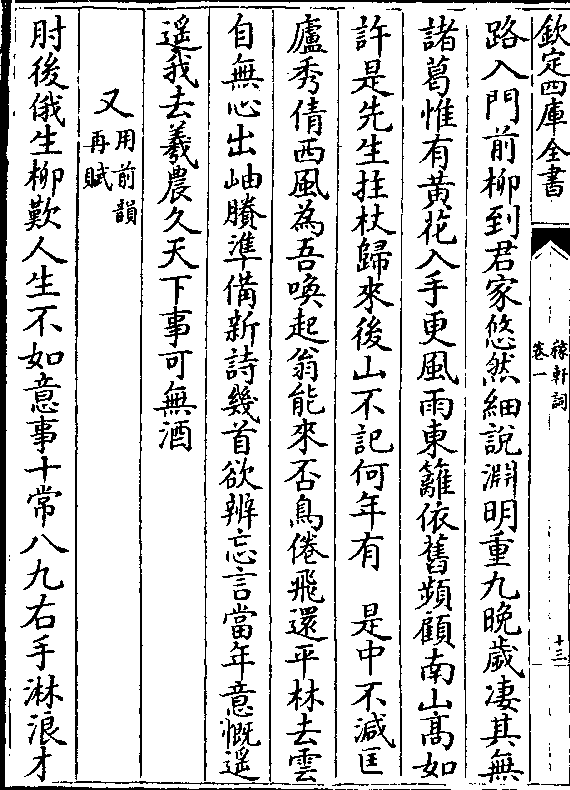 欽定四庫全書
稼軒詞
卷一
十三
路入門前柳到君家悠然細說淵明重九晚歲凄其無
諸葛惟有黃花入手更風雨東籬依舊頻顧南山高如
許是先生拄杖歸來後山不記何年有 是中不減匡
廬秀倩西風為吾喚起翁能來否鳥倦飛還平林去雲
自無心出岫賸準備新詩幾首欲辨忘言當年意慨遥
遥我去羲農久天下事可無酒
又用前韻
再賦
肘後俄生柳歎人生不如意事十常八九右手淋浪才